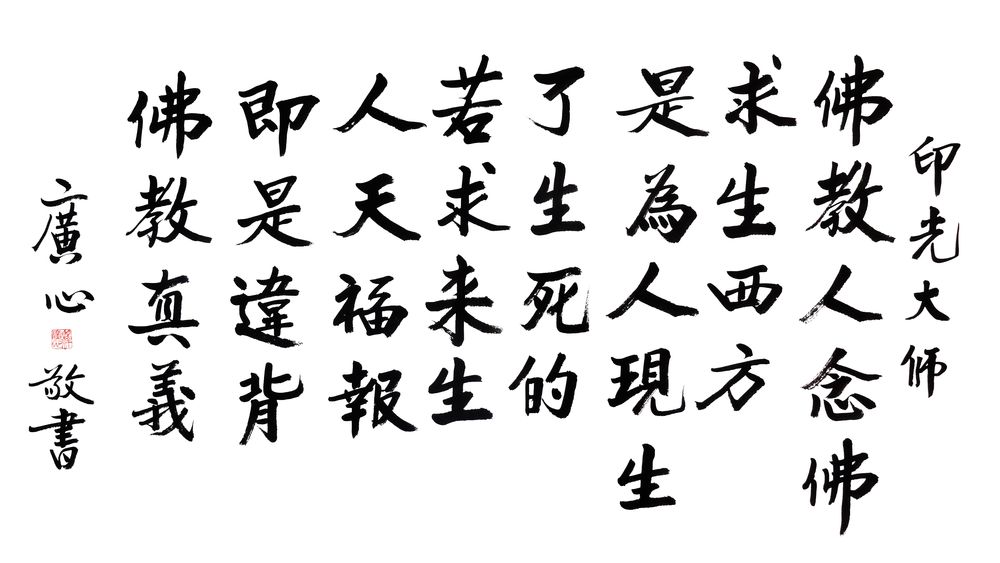 印光大师
佛教人念佛
求生西方
是為人現生
了生死的
若求来生
人天福報
即是違背
佛教真義
廣心
敬書